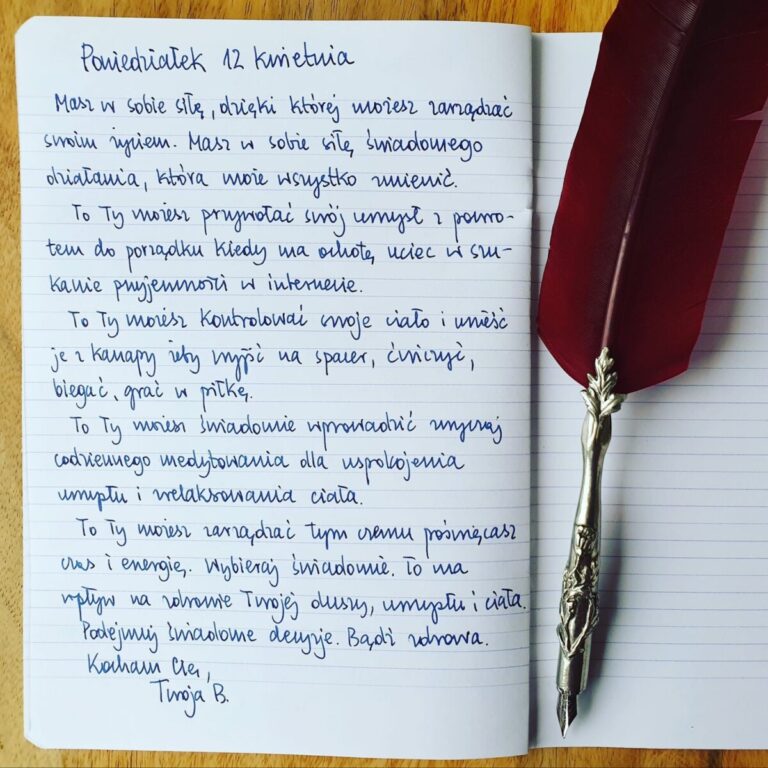 Poniedziałek 12 kwietnia
Masz w sobie siłę, dzięki której możesz zarządzać
swoim życiem. Masz w sobie siłę świadomego
działania, która może wszystko zmienić.
To Ty możesz przywołać swój umysł z powro-
tem do porządku kiedy ma ochotę uciec w szu-
kanie przyjemności w internecie.
To Ty możesz kontrolować swoje ciało i unieść
je z kanapy żeby wyjść na spacer, ćwiczyć,
biegać, grać w piłkę.
To Ty możesz świadomie wprowadzić zwyczaj
codziennego medytowania dla uspokojenia
umysłu i zrelaksowania ciała.
To Ty możesz zarządzać tym czemu poświęcasz
czas i energię. Wybieraj świadomie. To ma
wpływ na zdrowie Twojej duszy, umysłu i ciała.
Podejmuj świadome decyzje. Bądź zdrowa.
Kocham Cię,
Twoja B.